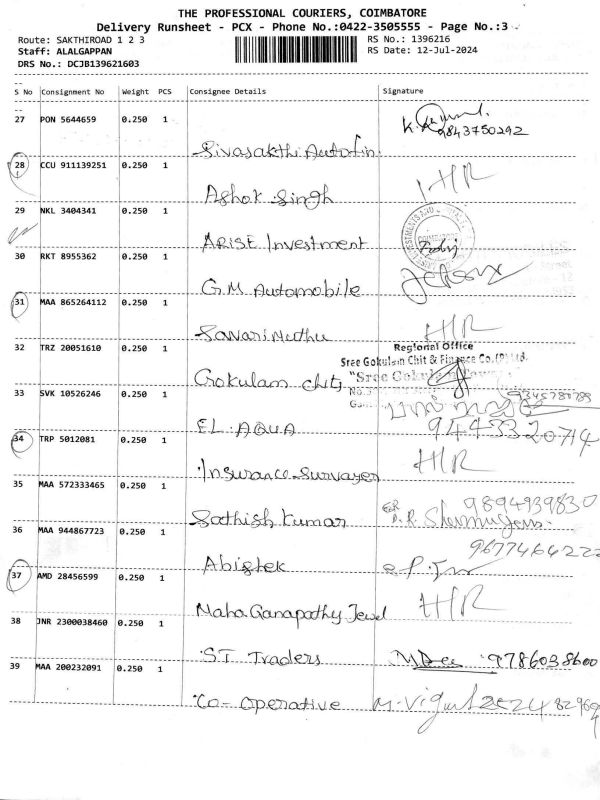 THE PROFESSIONAL COURIERS, COIMBATORE
Delivery Runsheet - PCX - Phone No.:0422-3505555 - Page No.:3
Route: SAKTHIROAD 1 2 3 RS No.: 1396216
Staff: ALALGAPPAN RS Date: 12-Jul-2024
DRS No.: DCJB139621603
S No Consignment No Weight PCS Consignee Details Signature
27 PON 5644659 0.250 1
9843750292
Sivasakthi Autofin
28 CCU 911139251 0.250 1
Ashok Singh
29 NKL 3404341 0.250 1
ARISE Investment
30 RKT 8955362 0.250 1
G.M Automobile
31 MAA 865264112 0.250 1
Regional Office
32 TRZ 20051610 0.250 1 Sree Gokulam Chit & Finance Co.(P) Ltd.
Gokulam chits "Sree Gokulam
33 SVK 10526246 0.250 1
EL AQUA 9445320714
34 TRP 5012081 0.250 1
Insurance Survayer
35 MAA 572333465 0.250 1
9894939830
Sathish Kumar
36 MAA 944867723 0.250 1
Abishek
37 AMD 28456599 0.250 1
Maha Ganapathy Jewel
38 JNR 2300038460 0.250 1
ST Traders 9786038600
39 MAA 200232091 0.250 1
Co-operative